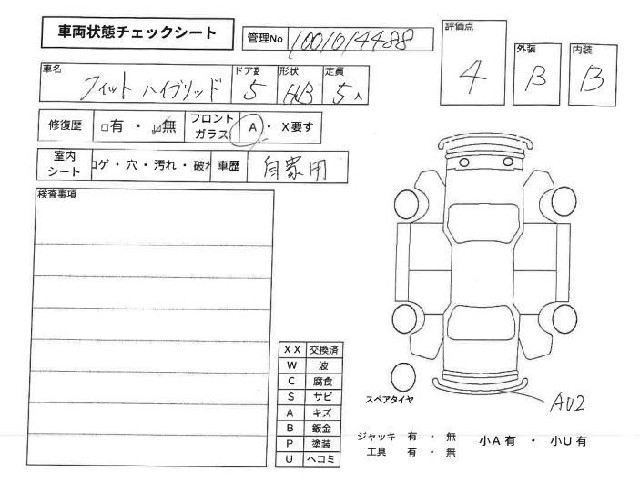 車両状態チェックシート
管理No 1001014488
評価点 4
外装 B
内装 B
車名 フィット ハイブリッド
ドア数 5
形状 HB
定員 5人
修復歴 □有・□無
フロントガラス A・X要す
室内シート コゲ・穴・汚れ・破れ
車歴 自家用
検査事項
XX 交換済
W 波
C 腐食
S サビ
A キズ
B 鈑金
P 塗装
U ヘコミ
スペアタイヤ
AU2
ジャッキ 有・無
工具 有・無
小A有・小U有